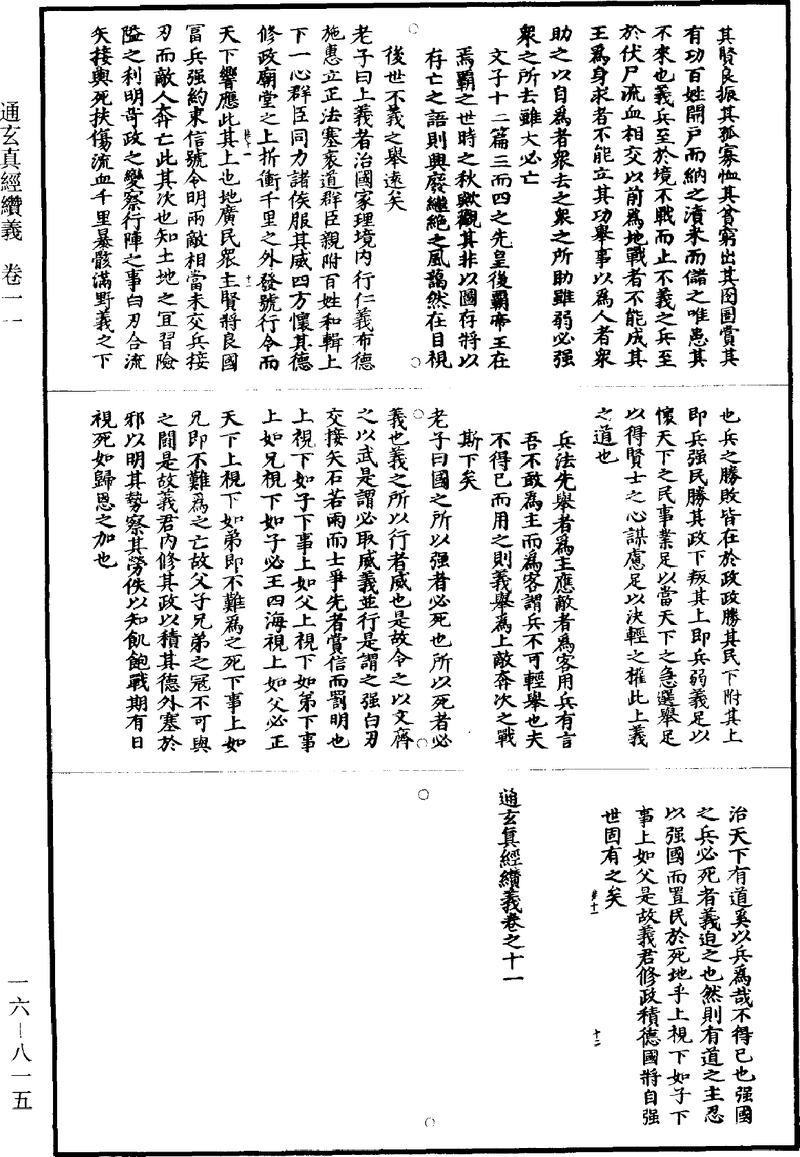 其賢良振其孤寡恤其貧窮出其囹圄賞其
有功百姓開戶而納之漬米而儲之唯患其
不來也義兵至於境不戰而止不義之兵至
於伏尸流血相交以前為地戰者不能成其
王為身求者不能立其功舉事以為人者衆
助之以自為者衆去之衆之所助雖弱必强
衆之所去雖大必亡
文子十二篇三而四之先皇後霸帝王在
焉霸之世時之秋歟觀其非以國存將以
存亡之語則興廢繼絕之風藹然在目視
後世不義之舉遠矣
老子曰上義者治國家理境內行仁義布德
施惠立正法塞衺道群臣親附百姓和輯上
下一心群臣同力諸侯服其威四方懷其德
修政廟堂之上折衝千里之外發號行令而
天下響應此其上也地廣民衆主賢將良國
冨兵强約束信號令明兩敵相當未交兵接
刃而敵人奔亡此其次也知土地之宜習險
隘之利明苛政之變察行陣之事白刃合流
矢接輿死扶傷流血千里暴骸滿野義之下
也兵之勝敗皆在於政政勝其民下附其上
即兵强民勝其政下叛其上即兵弱義足以
懷天下之民事業足以當天下之急選舉足
以得賢士之心謀慮足以決輕之權此上義
之道也
兵法先舉者為主應敵者為客用兵有言
吾不敢為主而為客謂兵不可輕舉也夫
不得已而用之則義舉為上敵奔次之戰
斯下矣
老子曰國之所以强者必死也所以死者必
義也義之所以行者威也是故令之以文齊
之以武是謂必取威義並行是謂之强白刃
交接矢石若雨而士爭先者賞信而罰明也
上視下如子下事上如父上視下如弟下事
上如兄視下如子必王四海視上如父必正
天下上視下如弟即不難為之死下事上如
兄即不難為之亡故父子兄弟之冦不可與
之鬪是故義君內修其政以積其德外塞於
邪以明其勢察其勞佚以知飢飽戰期有日
視死如歸恩之加也
治天下有道奚以兵為哉不得已也强國
之兵必死者義迫之也然則有道之主忍
以强國而置民於死地乎上視下如子下
事上如父是故義君修政積德國將自强
世固有之矣
通玄真經纘義卷之十一
通玄真經纘義 卷一一
一六—八一五